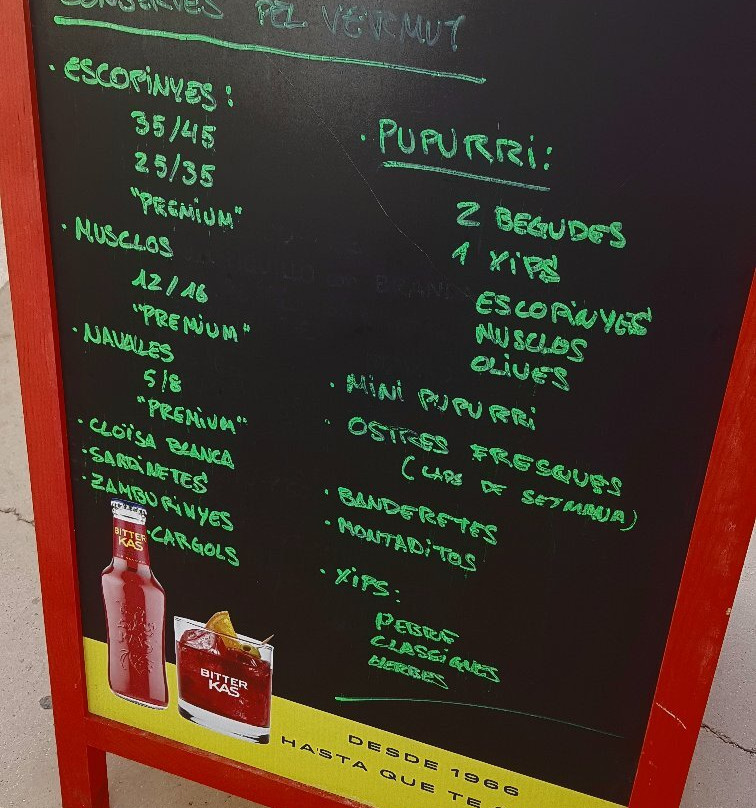 CONSERVES PEL VERMUT
· ESCOPINYES:
35/45
25/35
"PREMIUM"
· MUSCLOS
12/16
"PREMIUM"
· NAVALLES
5/8
"PREMIUM"
· CLOÏSA BLANCA
· SARDINETES
· ZAMBURINYES
CARGOLS
· PUPURRI:
2 BEGUDES
1 XIPS
ESCOPINYES
MUSCLOS
OLIVES
· MINI PUPURRI
· OSTRES FRESQUES
(CAPS DE SETMANA)
· BANDERETES
· MONTADITOS
· XIPS:
PEBRE
CLASSIQUES
HERBES
BITTER
KAS
BITTER
KAS
DESDE 1966
HASTA QUE TE